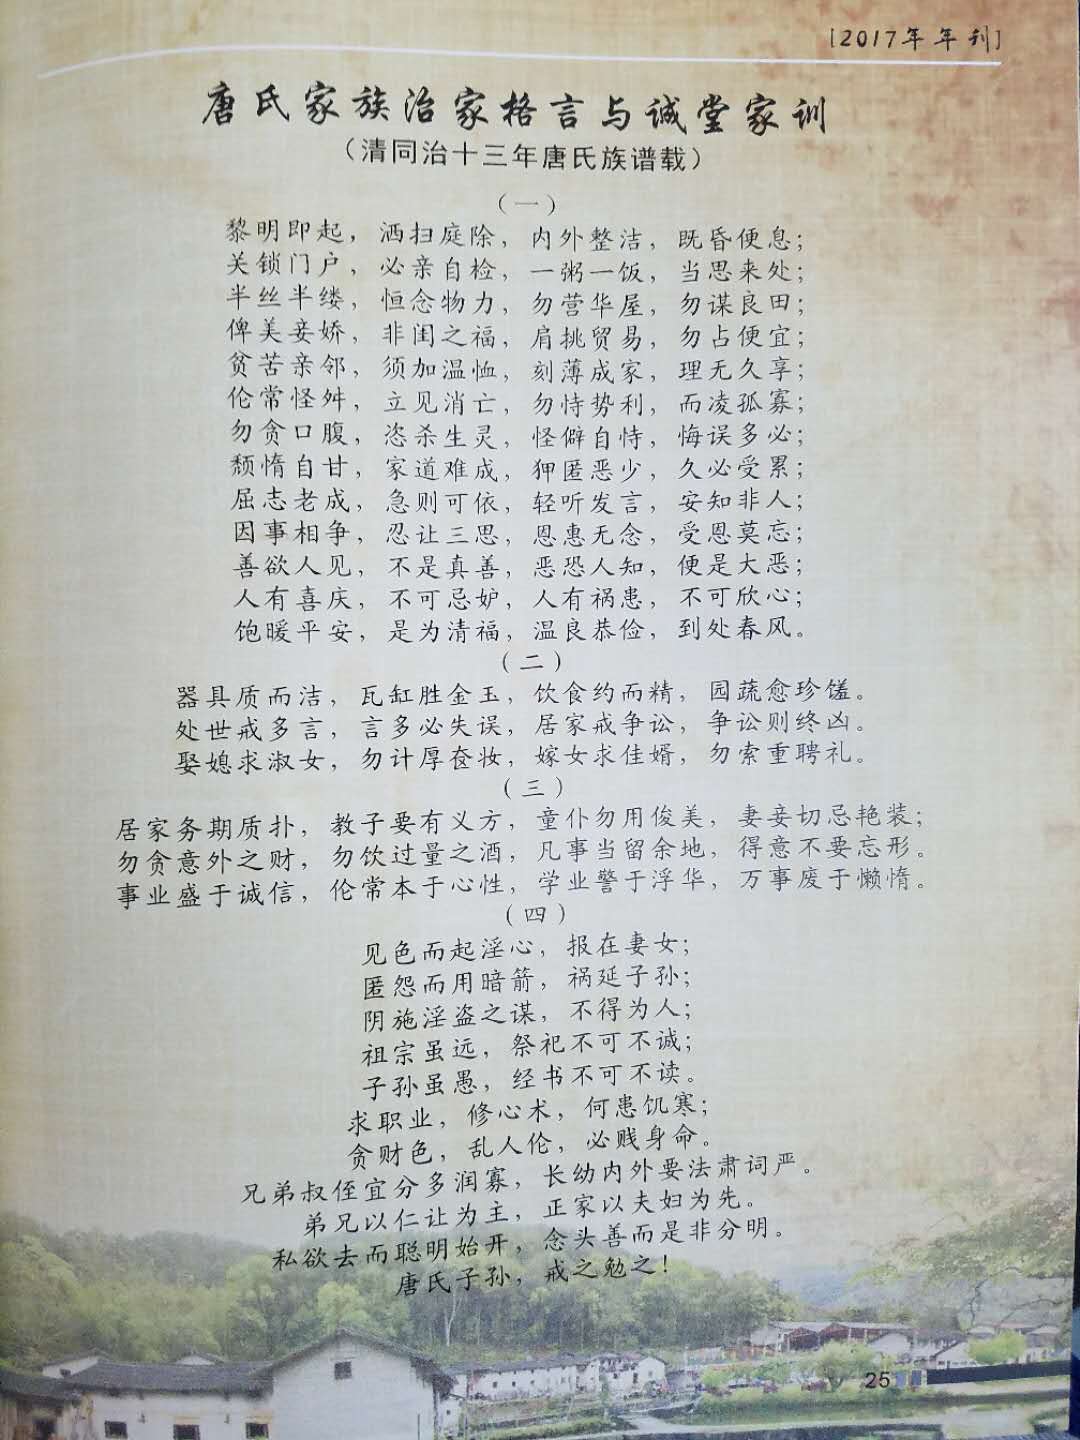 [2017年年刊]
唐氏家族治家格言与诚堂家训
（清同治十三年唐氏族谱载）
（一）
黎明即起，洒扫庭除，内外整洁，既昏便息；
关锁门户，必亲自检，一粥一饭，当思来处；
半丝半缕，恒念物力，勿营华屋，勿谋良田；
俾美妾娇，非闺之福，肩挑贸易，勿占便宜；
贫苦亲邻，须加温恤，刻薄成家，理无久享；
伦常怪舛，立见消亡，勿恃势利，而凌孤寡；
勿贪口腹，恣杀生灵，怪僻自恃，悔误多必；
颓惰自甘，家道难成，狎匿恶少，久必受累；
屈志老成，急则可依，轻听发言，安知非人；
因事相争，忍让三思，恩惠无念，受恩莫忘；
善欲人见，不是真善，恶恐人知，便是大恶；
人有喜庆，不可忌妒，人有祸患，不可欣心；
饱暖平安，是为清福，温良恭俭，到处春风。
（二）
器具质而洁，瓦缸胜金玉，饮食约而精，园蔬愈珍馐。
处世戒多言，言多必失误，居家戒争讼，争讼则终凶。
娶媳求淑女，勿计厚奁妆，嫁女求佳婿，勿索重聘礼。
（三）
居家务期质扑，教子要有义方，童仆勿用俊美，妻妾切忌艳装；
勿贪意外之财，勿饮过量之酒，凡事当留余地，得意不要忘形。
事业盛于诚信，伦常本于心性，学业警于浮华，万事废于懒惰。
（四）
见色而起淫心，报在妻女；
匿怨而用暗箭，祸延子孙；
阴施淫盗之谋，不得为人；
祖宗虽远，祭祀不可不诚；
子孙虽愚，经书不可不读。
求职业，修心术，何患饥寒；
贪财色，乱人伦，必贱身命。
兄弟叔侄宜分多润寡，长幼内外要法肃词严。
弟兄以仁让为主，正家以夫妇为先。
私欲去而聪明始开，念头善而是非分明。
唐氏子孙，戒之勉之！
25